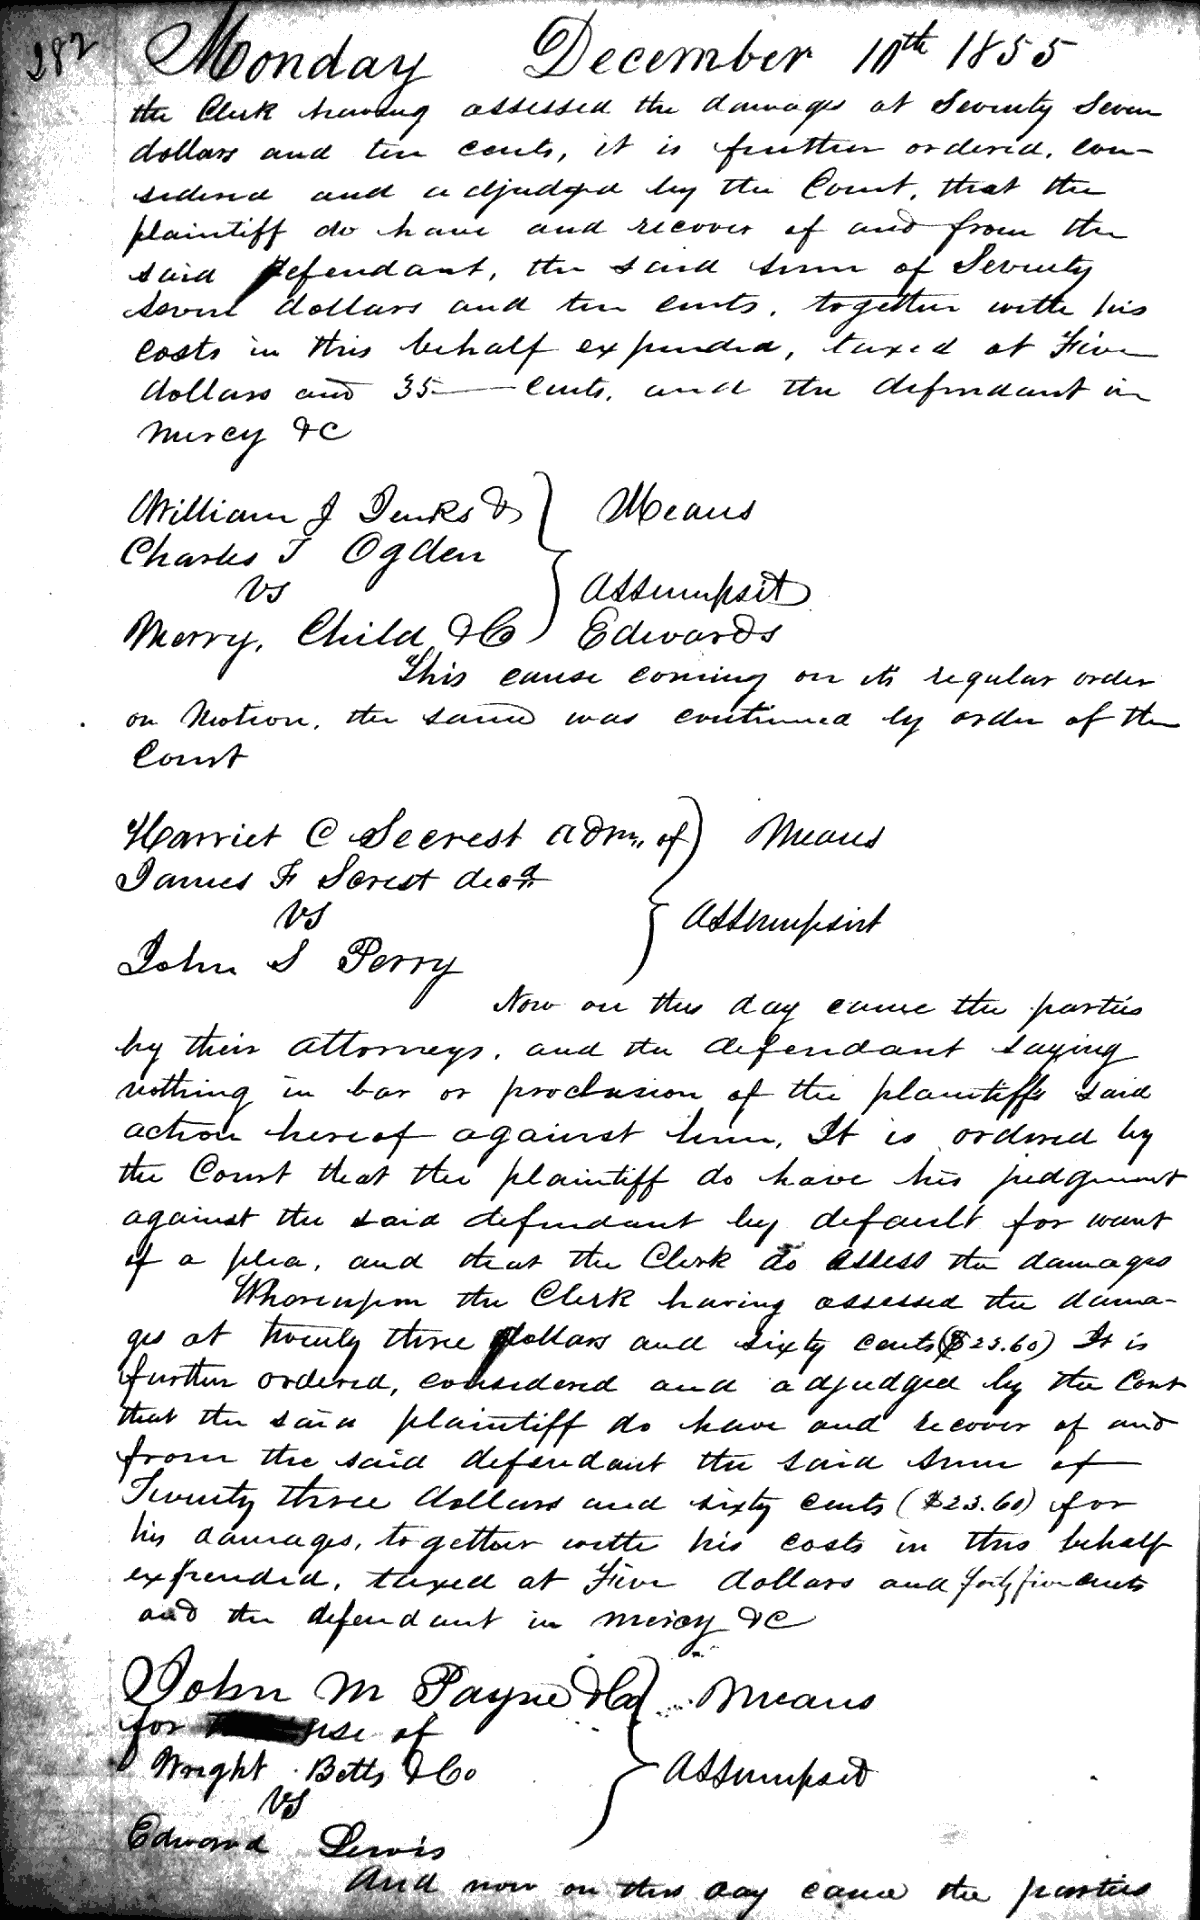 282 Monday December 10th 1855
the Clerk having assessed the damages at Seventy Seven
dollars and ten cents, it is further ordered, con-
sidered and adjudged by the Court, that the
plaintiff do have and recover of and from the
said defendant, the said sum of Seventy
seven dollars and ten cents, together with his
costs in this behalf expended, taxed at Five
dollars and 35 — cents, and the defendant in
mercy &C
William J Jenks & Means
Charles T Ogden
vs Assumpsit
Merry, Child, & Co Edwards
This cause coming on its regular order
on Motion, the same was continued by order of the
Court
Harriet C Secrest adm. of Means
James F Screst decd
vs Assumpsint
John S Perry
Now on this day came the parties
by their attorneys, and the defendant saying
nothing in bar or proclusion of the plaintiffs said
action hereof against him, It is ordered by
the Court that the plaintiff do have his judgment
against the said defendant by default for want
of a plea, and that the Clerk do assess the damages
Whereupon the Clerk having assessed the dama-
ges at twenty three dollars and sixty cents ($23.60) It is
further ordered, considered and adjudged by the Court
that the said plaintiff do have and recover of and
from the said defendant the said sum of
Twenty three dollars and sixty cents ($23.60) for
his damages, together with his costs in this behalf
expended, taxed at Five dollars and forty five cents
and the defendant in mercy &C
John M Payne & Co Means
for use of
Wright Betts & Co Assumpsit
vs
Edward Lewis
And now on this day came the parties